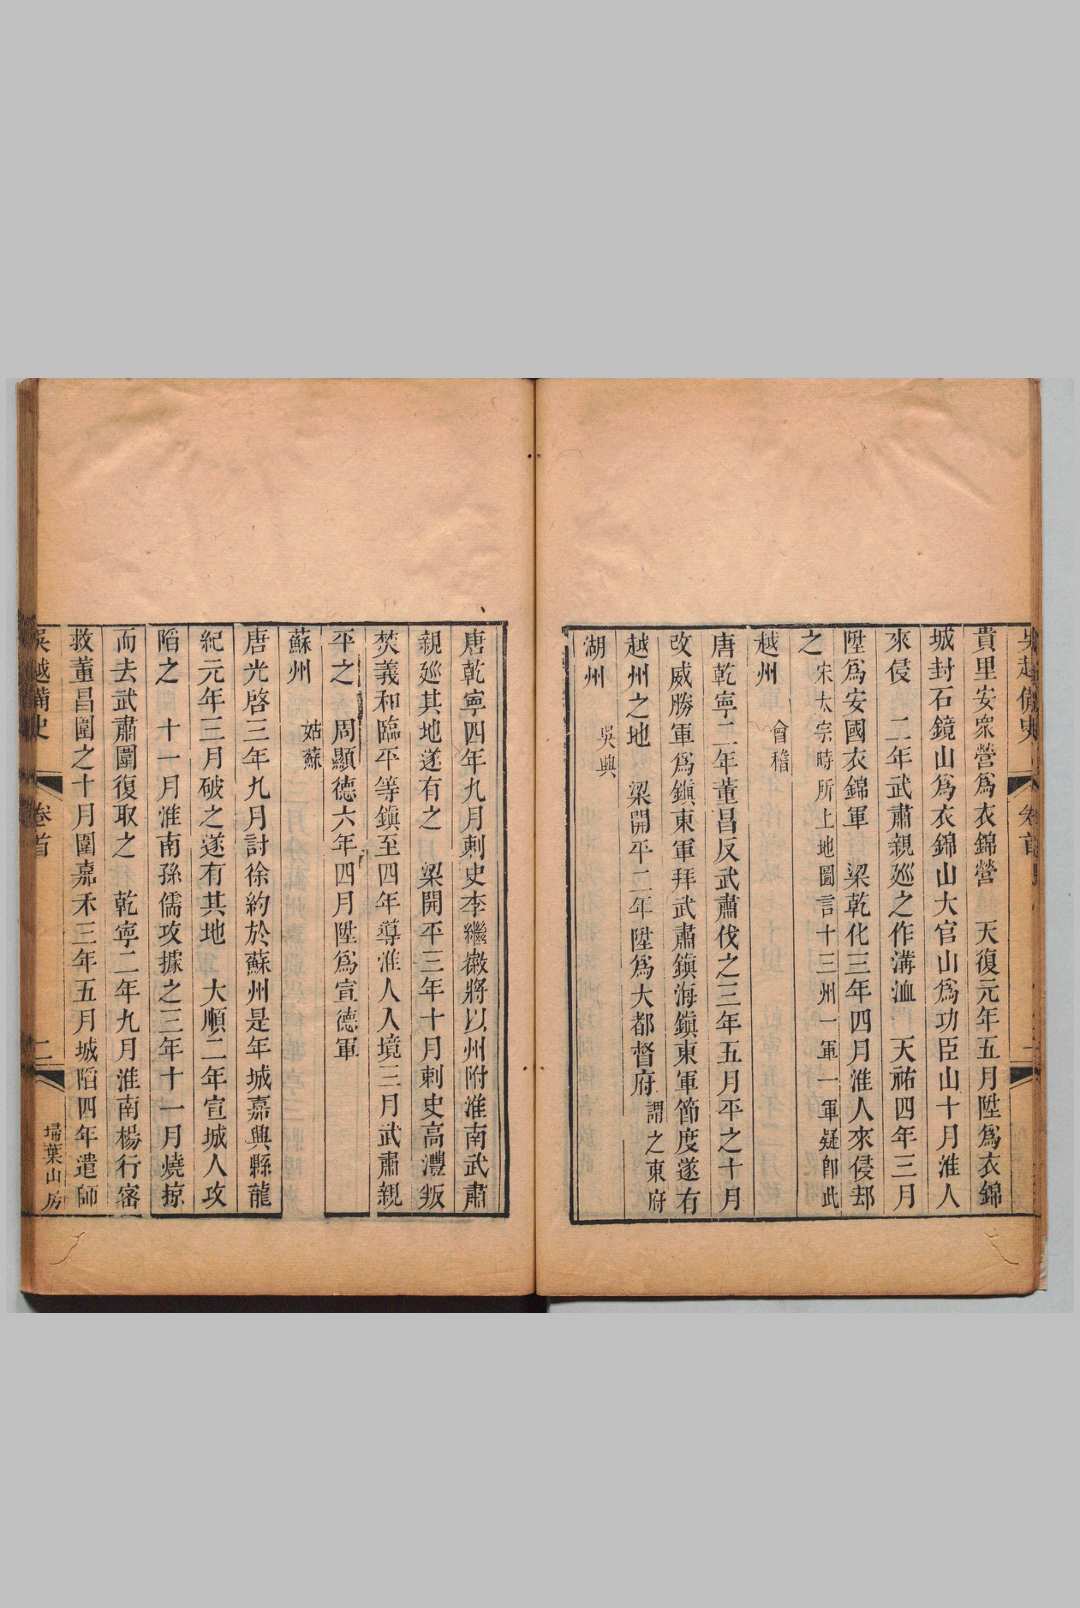 吳越備史
貴里安衆營爲衣錦營　天復元年五月陞爲衣錦
城封石鏡山爲衣錦山大官山爲功臣山十月淮人
來侵　二年武肅親廵之作溝洫　天祐四年三月
陞爲安國衣錦軍　梁乾化三年四月淮人來侵刼
之　宋太宗時所上地圖言十三州一軍一軍疑卽武
越州　會稽
唐乾寧二年董昌反武肅伐之三年五月平之十月
改威勝軍爲鎭東軍拜武肅鎭海鎭東軍節度遂有
越州之地　梁開平二年陞爲大都督府　謂之東府
湖州　吳興
唐乾寧四年九月刺史李繼徽將以州附淮南武肅
親廵其地遂有之　梁開平三年十月刺史高澧叛
焚義和臨平等鎭至四年導淮人入境三月武肅親
平之　周顯德六年四月陞爲宣德軍
蘇州　姑蘇
唐光啓三年九月討徐約於蘇州是年城嘉興縣龍
紀元年三月破之遂有其地　大順二年宣城人攻
陷之　十一月淮南孫儒攻據之三年十一月燒掠
而去武肅圍復取之　乾寧二年九月淮南楊行密
救董昌圍之十月圍嘉禾三年五月城陷四年遣師
吳越備史　卷首　二　掃葉山房